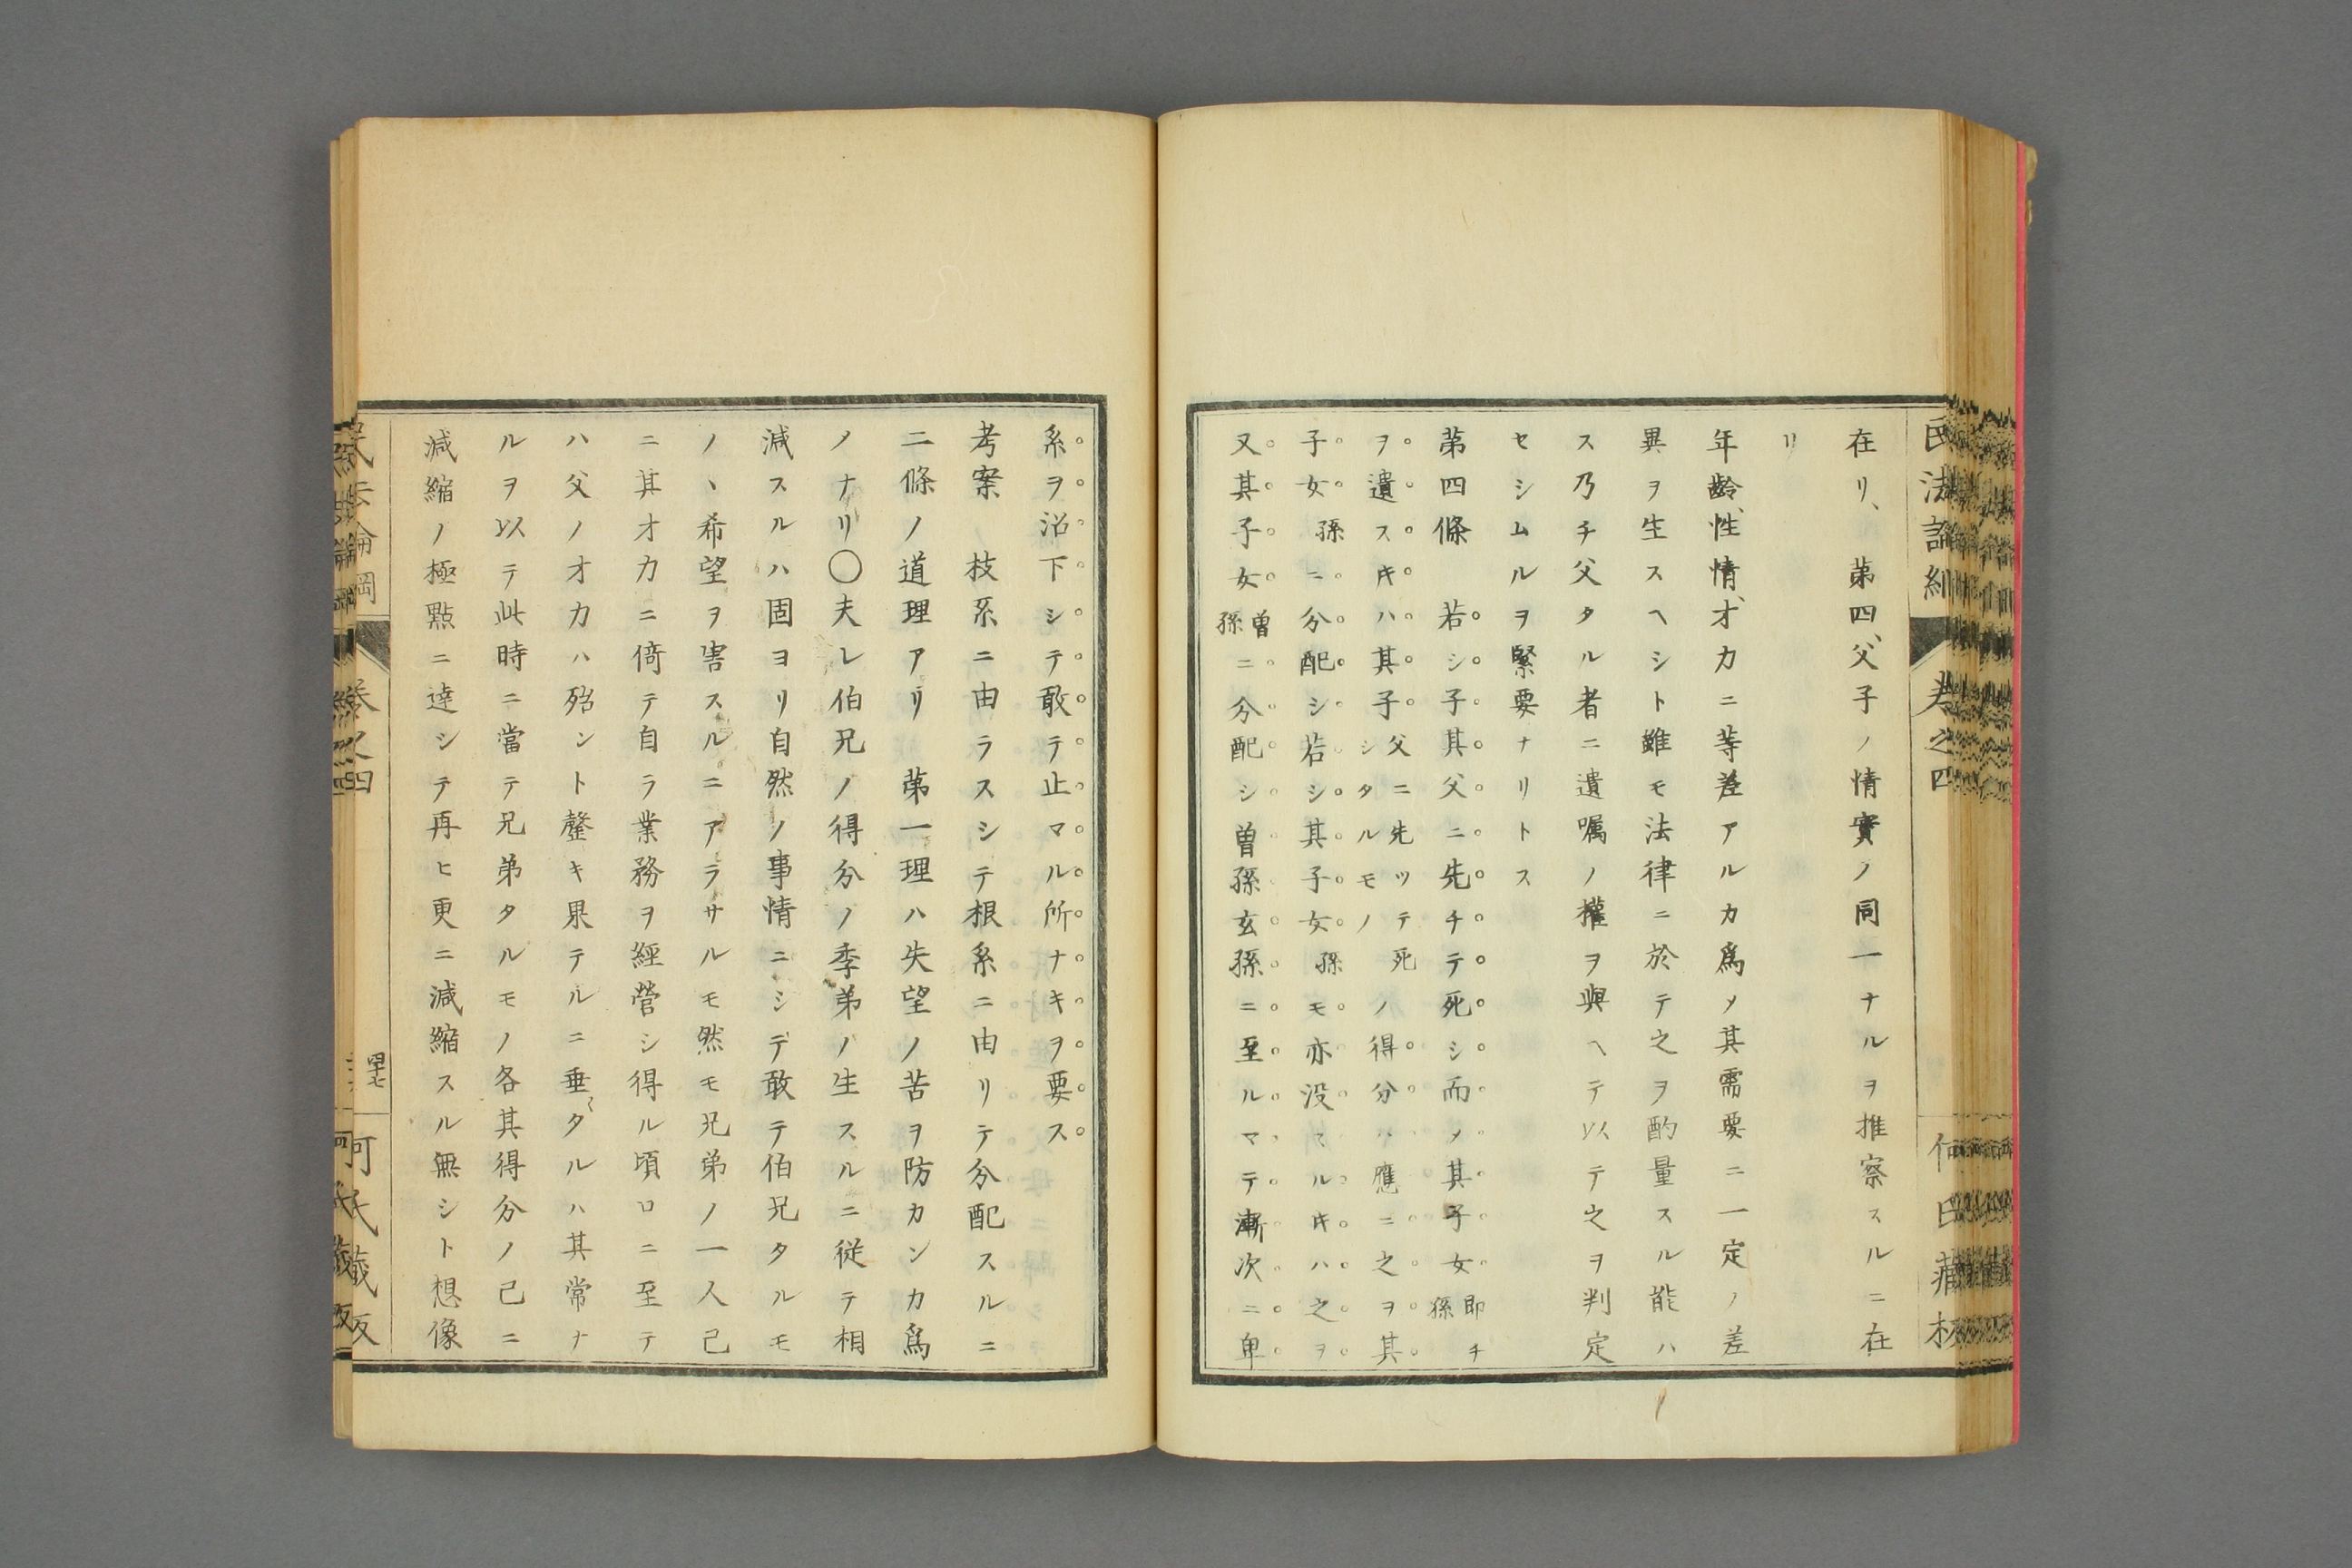 在リ、第四、父子ノ情實ノ同一ナルヲ推察スルニ在
リ
年齡、性情、才力ニ等差アルカ爲メ其需要ニ一定ノ差
異ヲ生スヘシト雖モ法律ニ於テ之ヲ酌量スル能ハ
ス乃チ父タル者ニ遺嘱ノ權ヲ與ヘテ以テ之ヲ判定
セシムルヲ緊要ナリトス
第四條 若シ子其父ニ先チテ死シ而メ其子女即チ孫
ヲ遺スキハ其子父ニ先ツテ死シタルモノノ得分ハ應ニ之ヲ其
子女孫ニ分配シ若シ其子女孫モ亦没マルキハ之ヲ
又其子女曽孫ニ分配シ曽孫玄孫ニ至ルマテ漸次ニ卑
系ヲ沿下シテ敢テ止マル所ナキヲ要ス
考案 枝系ニ由ラスシテ根系ニ由リテ分配スルニ
二條ノ道理アリ 第一理ハ失望ノ苦ヲ防カンカ爲
ノナリ〇夫レ伯兄ノ得分ノ季弟ノ生スルニ従テ相
減スルハ固ヨリ自然ノ事情ニシテ敢テ伯兄タルモ
ノヽ希望ヲ害スルニアラサルモ然モ兄弟ノ一人己
ニ其才力ニ倚テ自ラ業務ヲ經營シ得ル頃ロニ至テ
ハ父ノ才力ハ殆ント罄キ果テルニ垂タルハ其常ナ
ルヲ以テ此時ニ當テ兄弟タルモノ各其得分ノ己ニ
減縮ノ極點ニ達シテ再ヒ更ニ減縮スル無シト想像
卷之四
四十七
何氏藏板